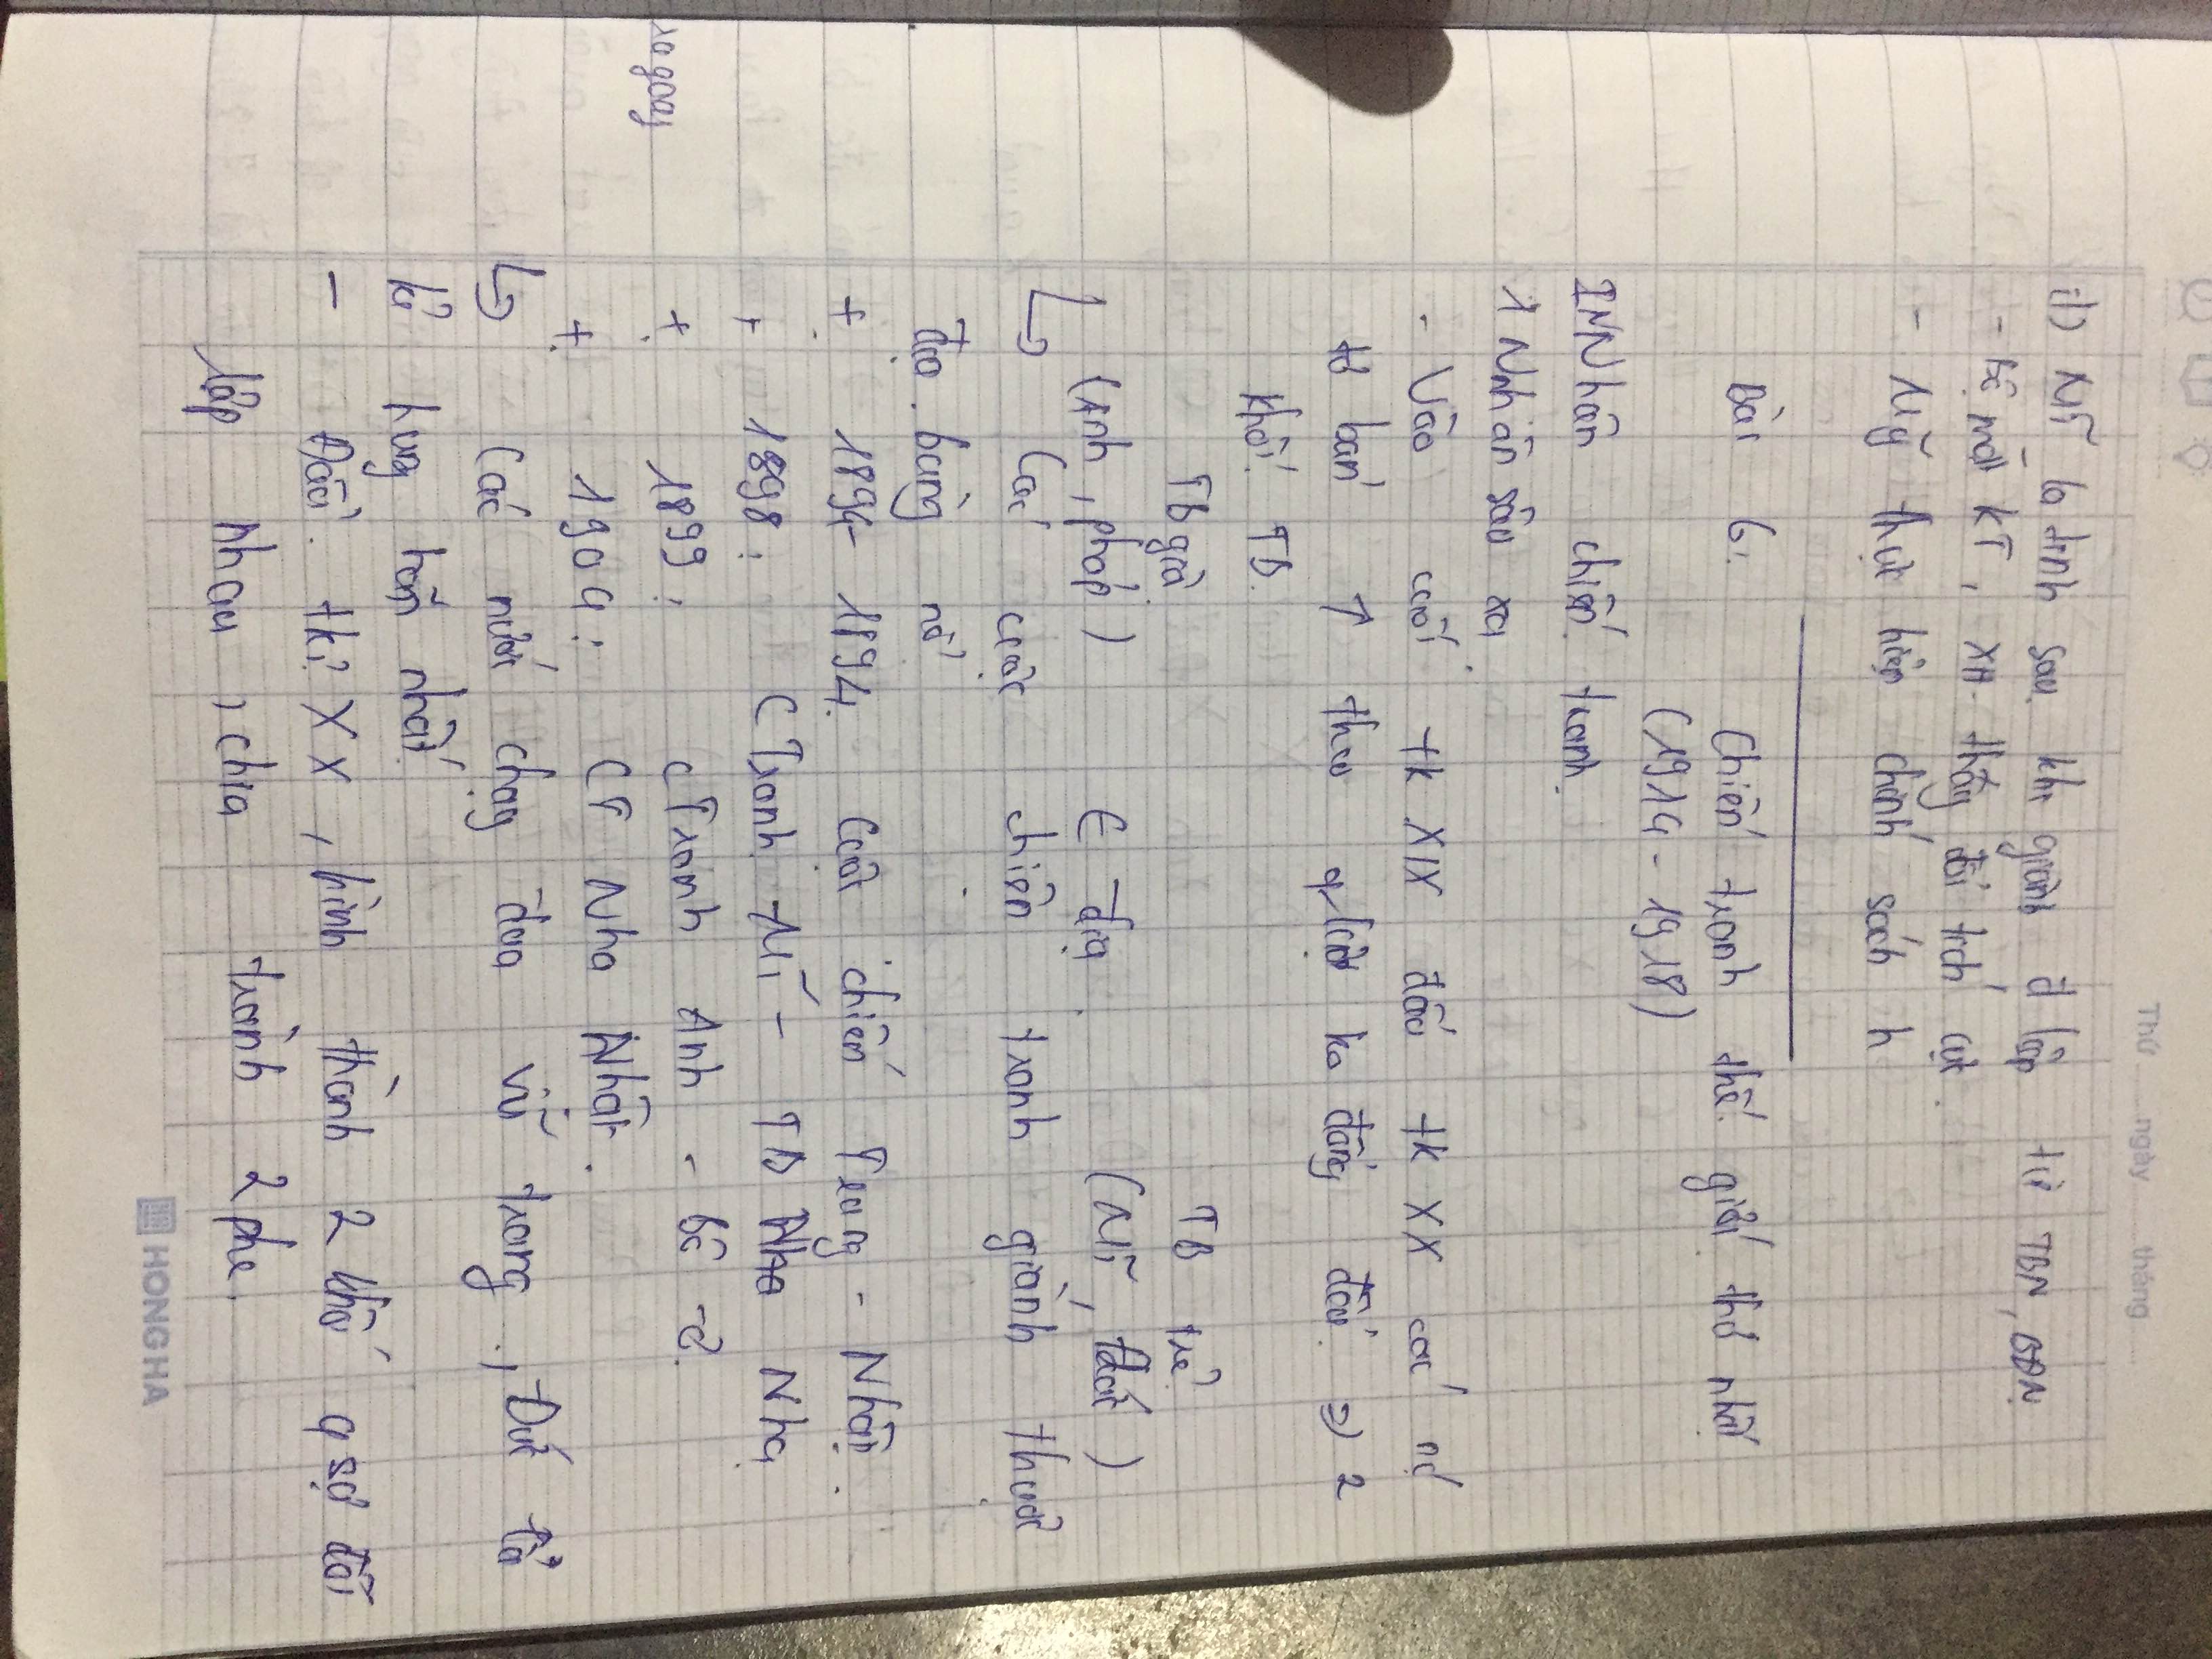 Thứ ........ ngày ........ tháng ........
ii) Mĩ la tinh sau khi giành đ lập từ TBN, BĐN
- Bề mặt KT, XH thay đổi tích cực.
- Mỹ thực hiện chính sách h
Bài 6: Chiến tranh thế giới thứ nhất
(1914 - 1918)
I. Nhân chiến tranh.
1 Nnhân sâu xa
- Vào cuối tk XIX đầu tk XX các nc
tư bản ↑ theo q luật ko đồng đều. => 2
khối TB.
TB già TB trẻ
(Anh, pháp) ∈ địa (Mĩ, Đức)
↳ Các cuộc chiến tranh giành thuộc
địa bùng nổ
+ 1894 - 1894. Cuộc chiến Trung - Nhật.
+ 1898: C Tranh Mĩ - TB Nha
+ 1899: cTranh Anh - Bô -ơ.
+ 1904: CT Nha Nhật.
↳ Các nước chạy đua vũ trang, Đức tỏ
ra hung hãn nhất
- Đầu tkỉ XX, hình thành 2 khối q sự đối
lập nhau, chia thành 2 phe.
HONG HA